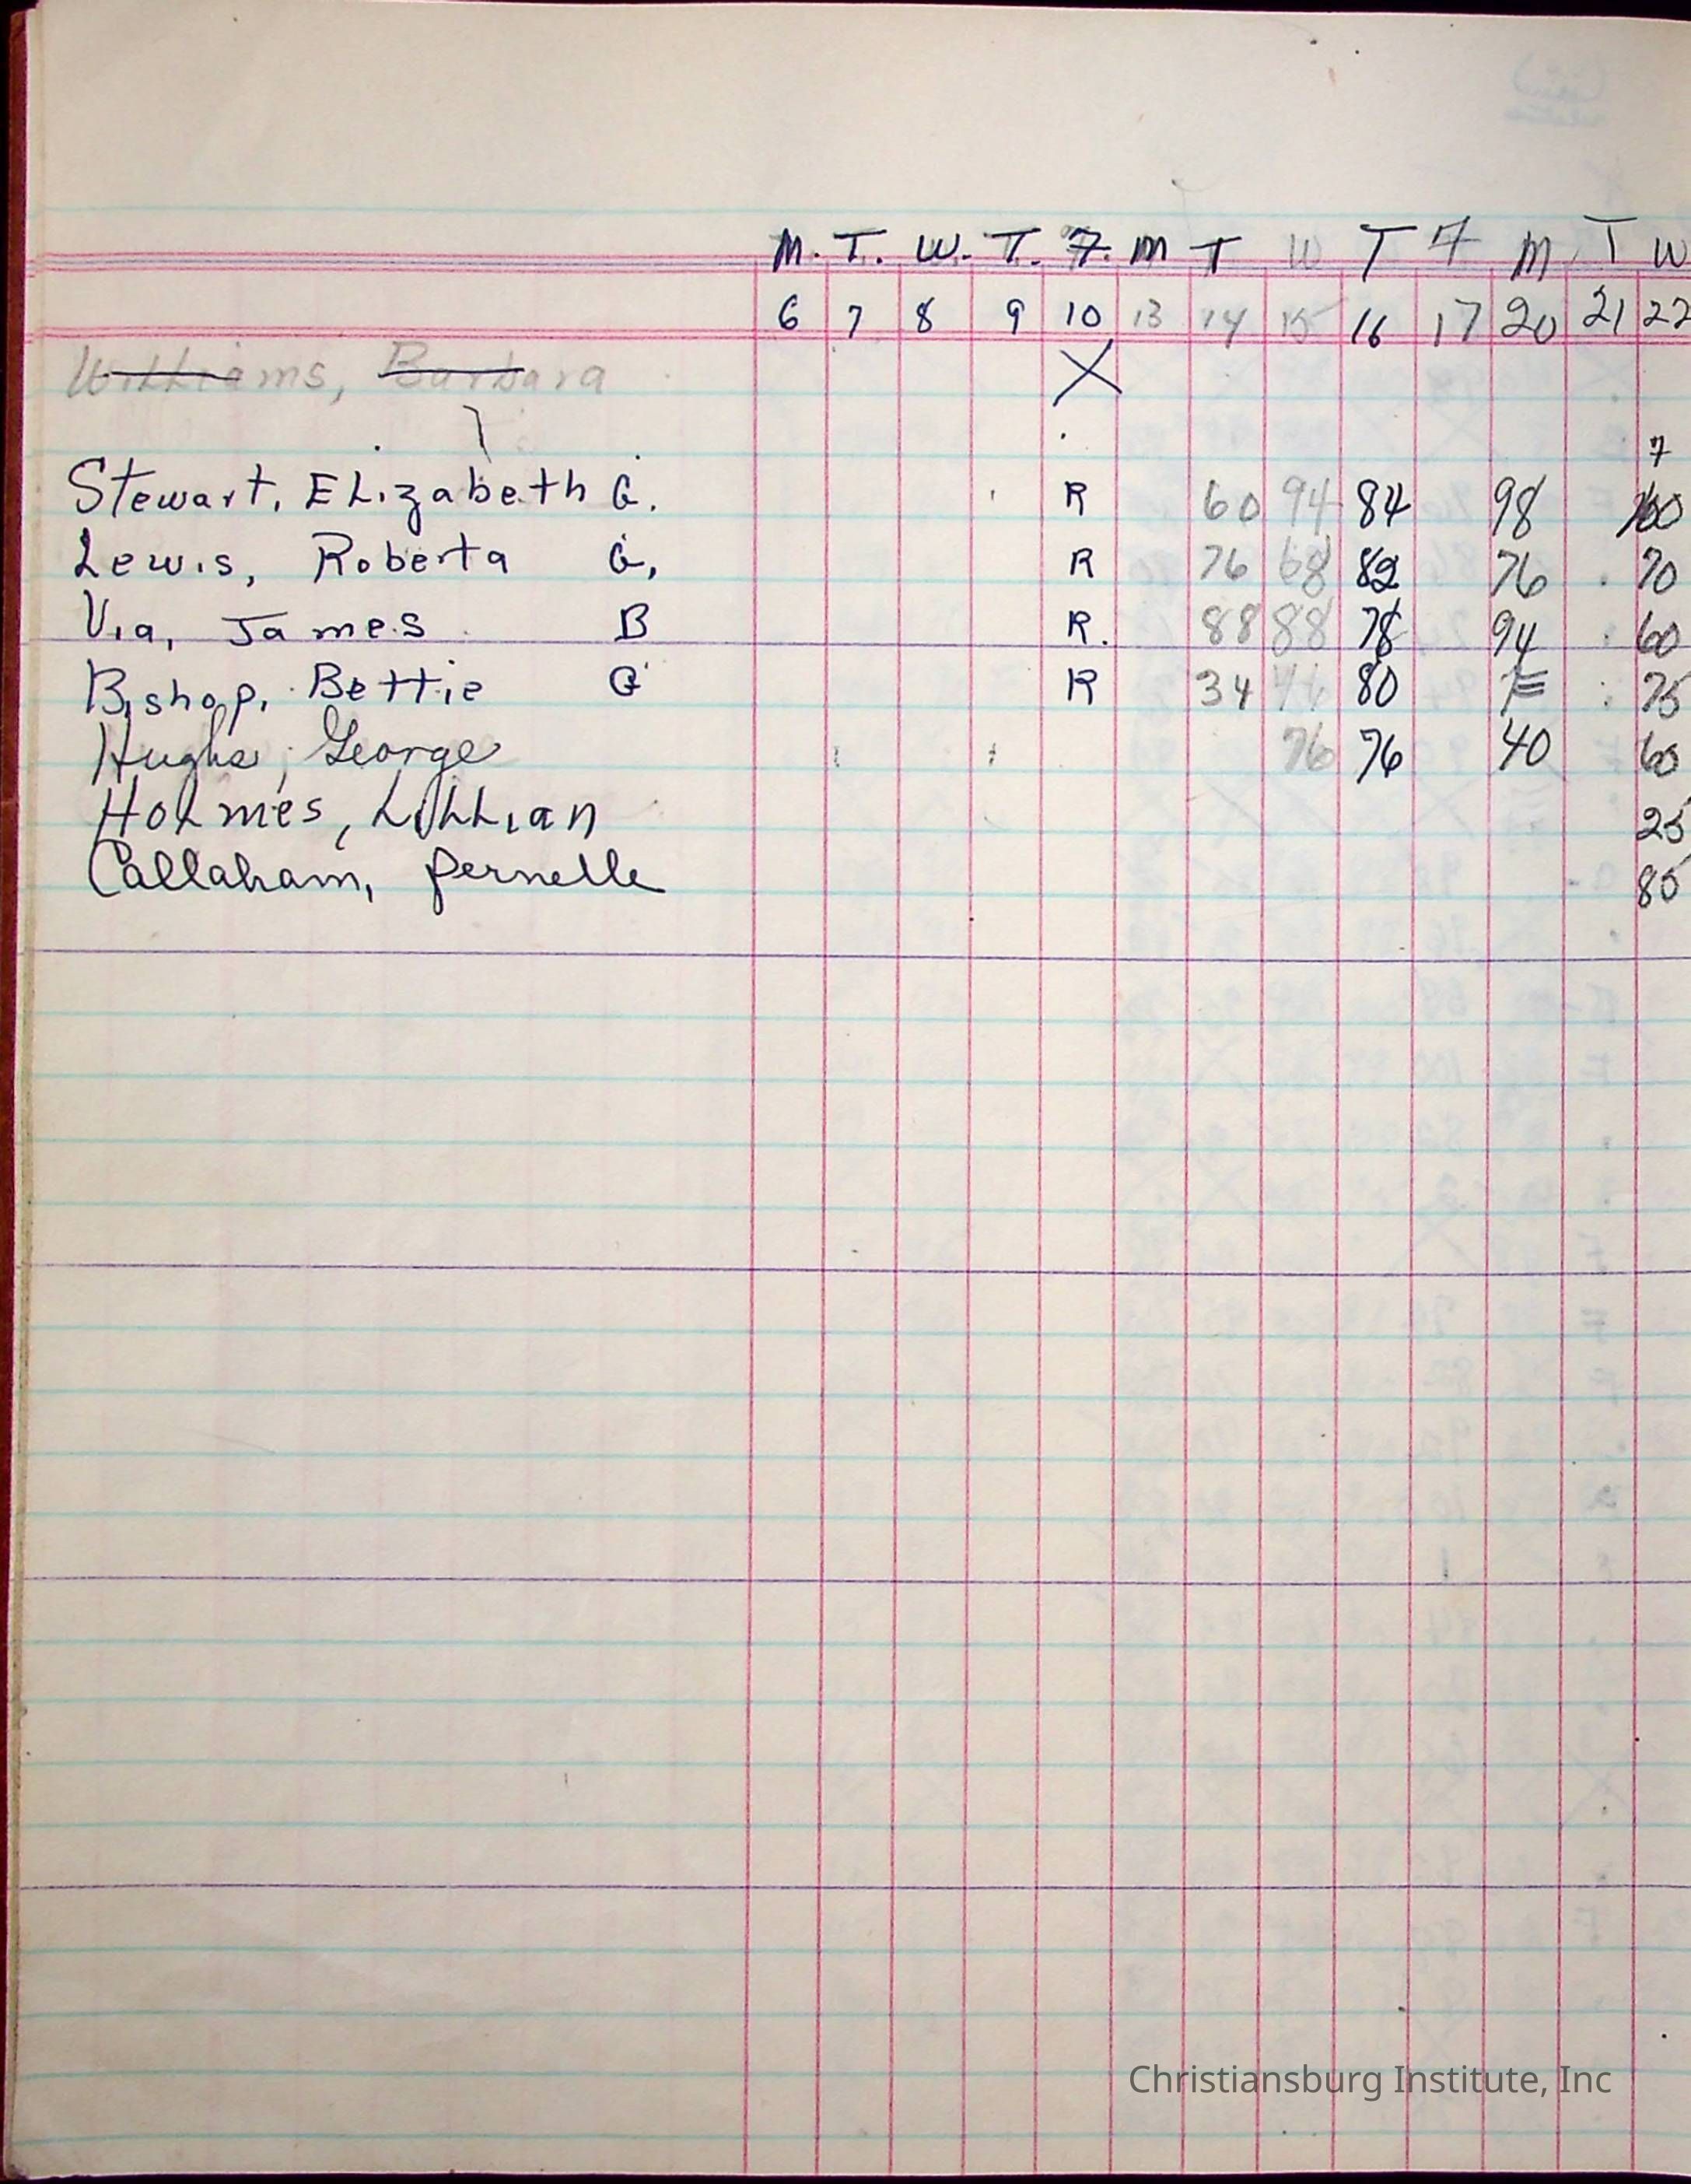 M. T. W. T. F. M T W T F M T W
6 7 8 9 10 13 14 15 16 17 20 21 22
Williams, Barbara X
7
Stewart, Elizabeth G. R 60 94 84 98 100
Lewis, Roberta G, R 76 68 82 76 70
Via, James B R. 88 88 78 94 60
Bishop, Bettie G R 34 80 75
Hughs, George 76 76 40 60
Holmes, Lillian 25
Callaham, Pernelle 85
Christiansburg Institute, Inc